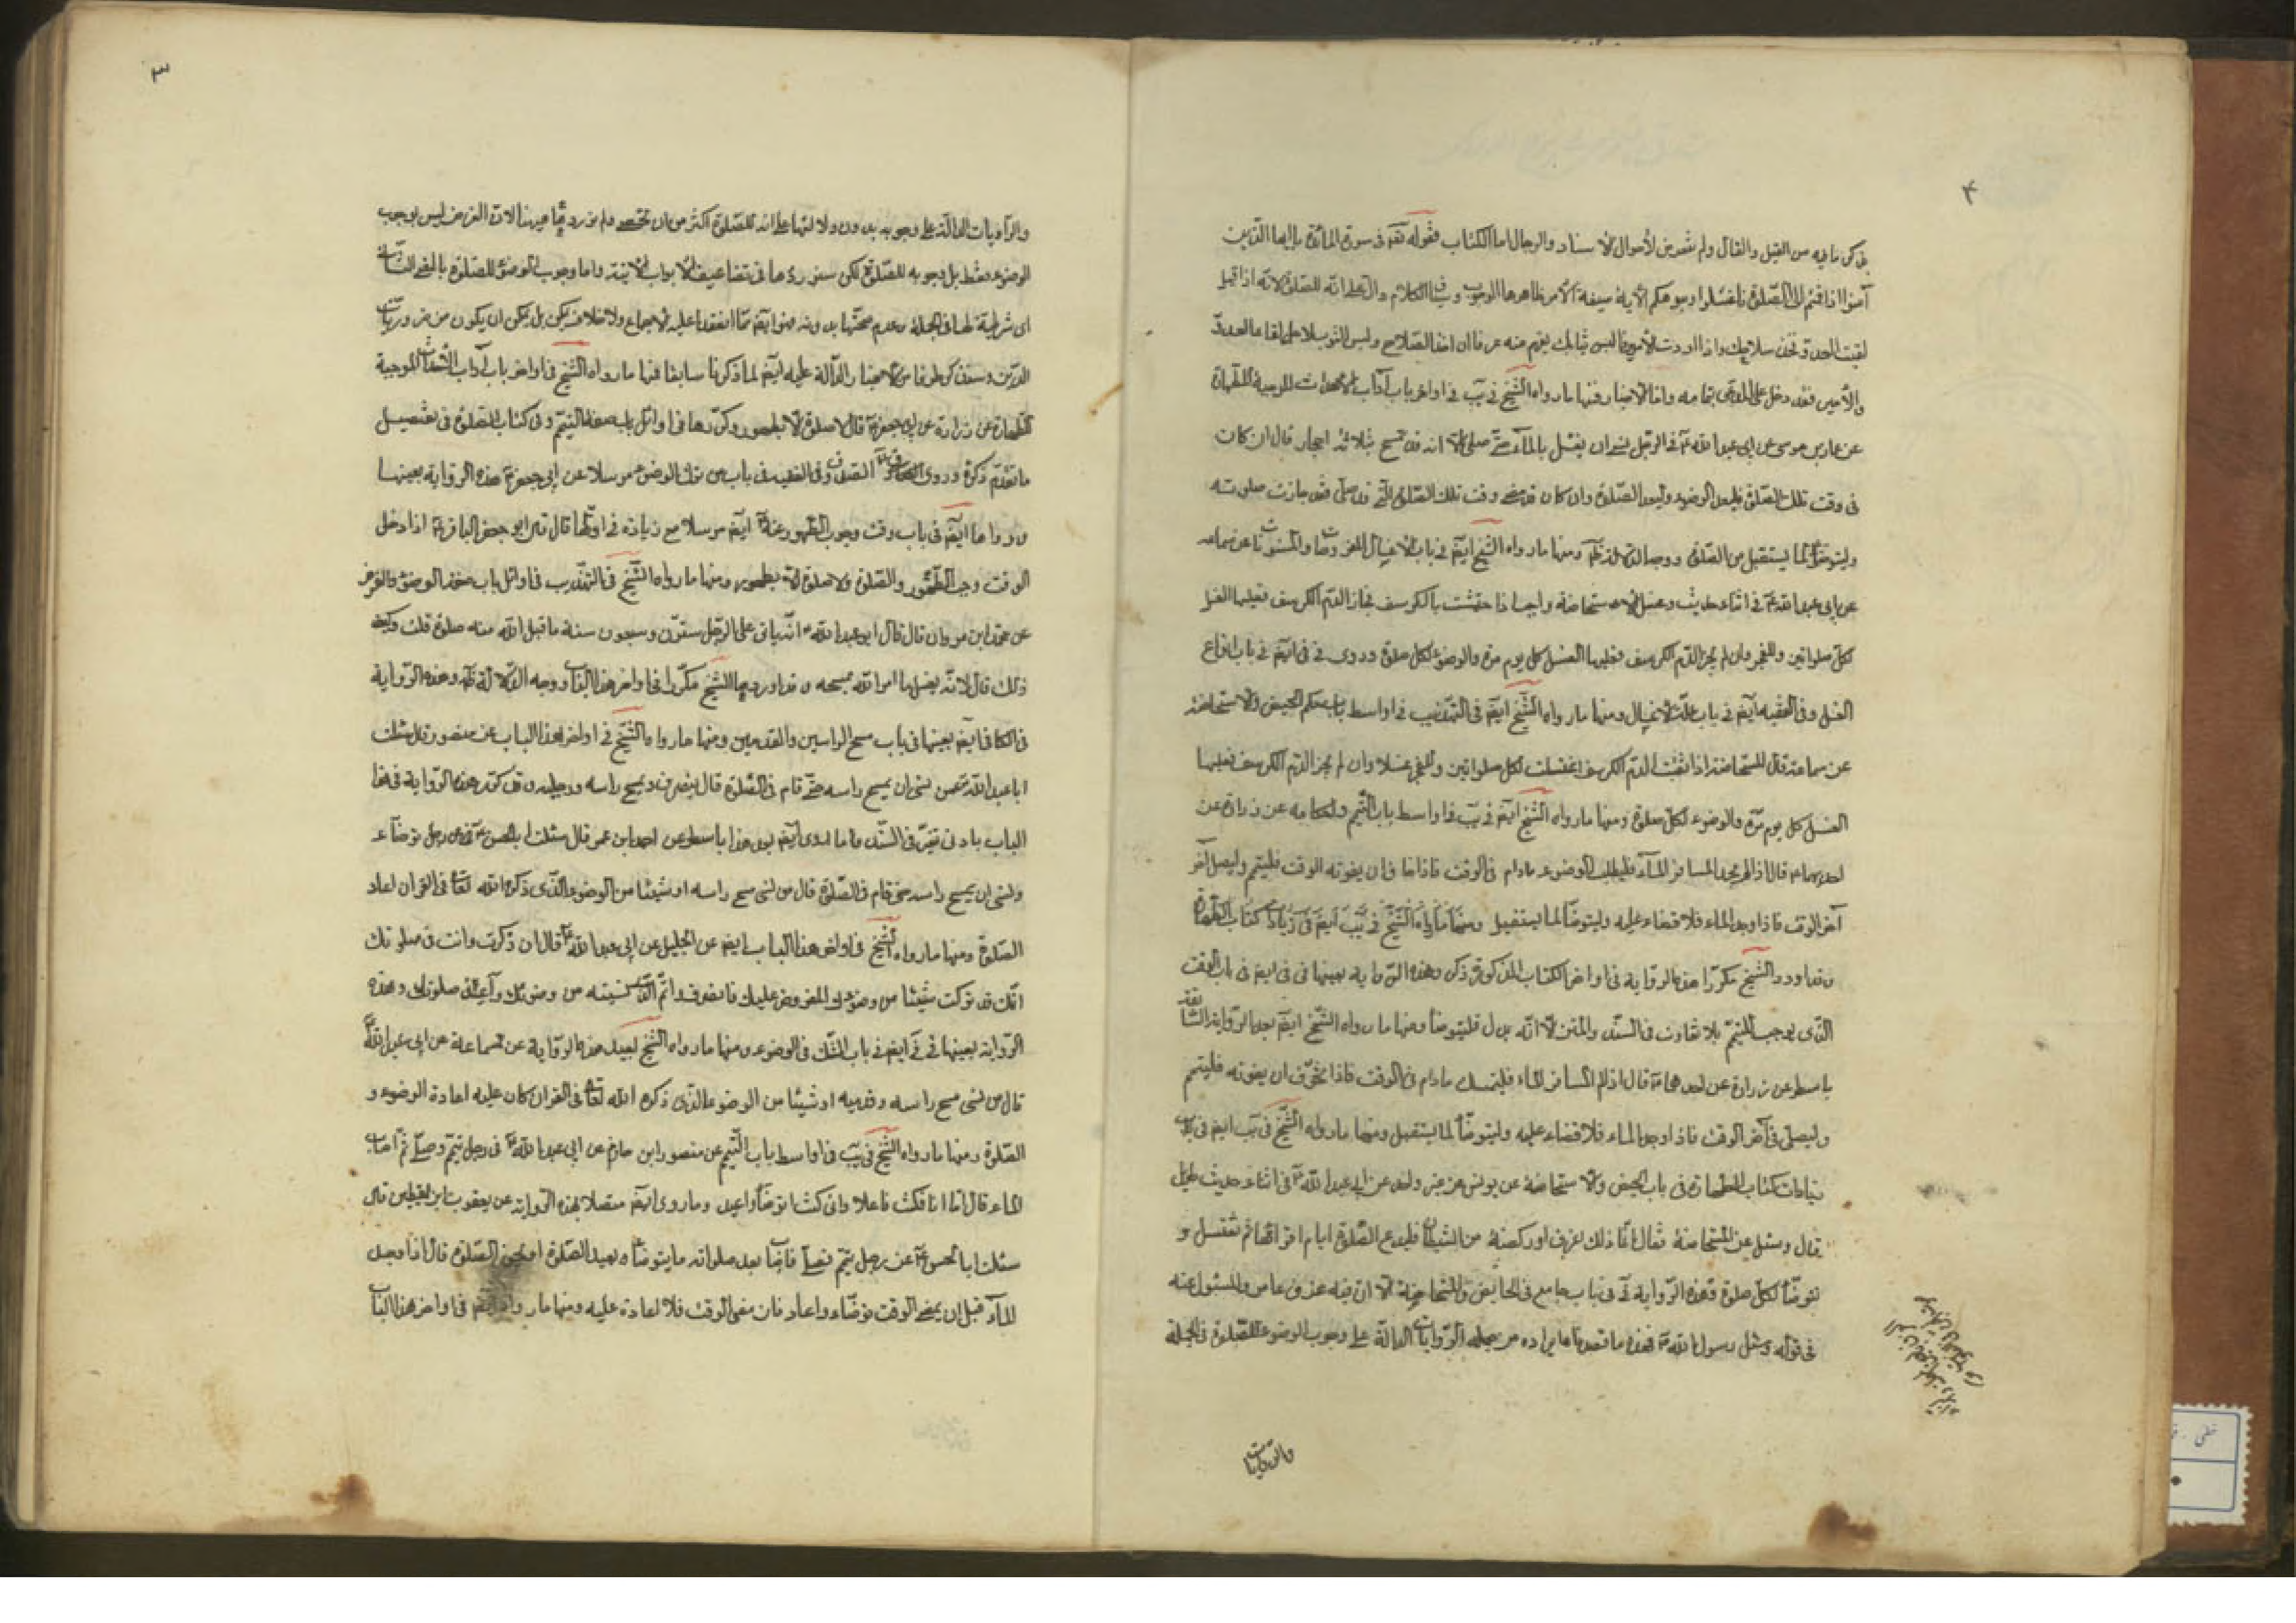 ۴
ذكر ما فيه من القيل والقال ولم نتعرض لأحوال الاسناد والرجال اما الكتاب فقوله تعالى فى سورة المائدة يا ايها الذين
آمنوا اذا قمتم الى الصلوة فاغسلوا وجوهكم الآية صيغة الأمر ظاهرها الوجوب والكلام دال على انه للصلوة لانه اذا قيل
لقيت العدو فخذ سلاحك واذا اردت الأمير فالبس ثيابك يفهم منه عرفا ان اخذ السلاح ولبس الثوب لاجل لقاء العدو
والأمير فقد دخل على المدعى بتمامه واما الاخبار فمنها ما رواه الشيخ فى يب فى اواخر باب آداب الاحداث الموجبة للطهارة
عن عمار بن موسى عن ابى عبد الله ع فى الرجل ينسى ان يغسل بالماء حتى صلى الا انه قد تمسح بثلاثة احجار قال ان كان
فى وقت تلك الصلوة فليعد الوضوء وليعد الصلوة وان كان قد مضى وقت تلك الصلوة التى قد صلى فقد جازت صلوته
وليتوضأ لما يستقبل من الصلوة ومنها ما رواه الشيخ ايضا فى باب الاغسال المفروضات والمسنونات عن سماعة
عن ابى عبد الله ع فى اثناء حديث وغسل الاستحاضة واجب اذا احتشت بالكرسف فجاز الدم الكرسف فعليها الغسل
لكل صلواتين وللفجر وان لم يجز الدم الكرسف فعليها الغسل كل يوم مرة والوضوء لكل صلوة وروى فى فى ايضا فى باب انواع
الغسل وفى الفقيه ايضا فى باب الاغسال ومنها ما رواه الشيخ ايضا فى التهذيب فى اواسط باب حكم الحيض والاستحاضة
عن سماعة قال المستحاضة اذا ثقب الدم الكرسف اغتسلت لكل صلواتين وللفجر غسلا وان لم يجز الدم الكرسف فعليها
الغسل كل يوم مرة والوضوء لكل صلوة ومنها ما رواه الشيخ ايضا فى يب فى اواسط باب التيمم واحكامه عن زرارة عن
احدهما ع قال اذا لم يجد المسافر الماء فليطلب الوضوء مادام فى الوقت فاذا خاف ان يفوته الوقت فليتيمم وليصل فى
آخر الوقت فاذا وجد الماء فلا قضاء عليه وليتوضأ لما يستقبل ومنها ما رواه الشيخ فى يب ايضا فى زيادات كتاب الطهارة
وقد اورد الشيخ مكررا هذه الرواية فى اواخر الكتاب المذكور وهذه الرواية بعينها فى فى ايضا فى باب الوقت
الذى يوجب التيمم بلا تفاوت فى السند والمتن الا انه بدل فليتوضأ ومنها ما رواه الشيخ ايضا بعد الرواية السابقة
باسطر عن زرارة عن احدهما ع قال اذا لم يجد المسافر الماء فليمسك مادام فى الوقت فاذا تخوف ان يفوته فليتيمم
وليصل فى آخر الوقت فاذا وجد الماء فلا قضاء عليه وليتوضأ لما يستقبل ومنها ما رواه الشيخ فى يب ايضا فى باب
زيادات كتاب الطهارة فى باب الحيض والاستحاضة عن يونس عن غير واحد عن ابى عبد الله ع فى اثناء حديث طويل
قال وسئل عن المستحاضة فقال انما ذلك عرق او ركضة من الشيطان فلتدع الصلوة ايام اقرائها ثم تغتسل و
تتوضأ لكل صلوة وهذه الرواية فى فى باب جامع فى الحائض والمستحاضة الا ان فيه عرق عامر والمسئول عنه
فى قوله وسئل رسول الله ص فهذه ما قصدنا ايراده من جملة الروايات الدالة على وجوب الوضوء للصلوة فى الجملة
والروايات
۳
والروايات الدالة على وجوبه بدون دلالتها على انه للصلوة اكثر من ان تحصى ولم نوردها هيهنا لان الغرض ليس بوجوب
الوضوء فقط بل وجوبه للصلوة لكن سنوردها فى تضاعيف الابواب الآتية واما وجوب الوضوء للصلوة بالمعنى الثانى
اى شرطية لها فى الجملة وعدم صحتها بدونه فهو ايضا مما انعقد عليه الاجماع ولا خلاف بل يمكن ان يكون من ضروريات
الدين وسنذكر طرفا من الاخبار الدالة عليه ايضا لما ذكرنا سابقا فمنها ما رواه الشيخ فى اواخر باب آداب الأحداث الموجبة
للطهارة عن زرارة عن ابى جعفر ع قال لا صلوة الا بطهور وكررها فى اوائل باب صفة التيمم وفى كتاب الصلوة فى تفصيل
ما تقدم ذكره وروى الصدوق فى الفقيه فى باب من ترك الوضوء مرسلا عن ابى جعفر ع هذه الرواية بعينها
ورواها ايضا فى باب وقت وجوب الطهور عنه ع ايضا مرسلا مع زيادة فى اولها قال قال ابو جعفر الباقر ع اذا دخل
الوقت وجب الطهور والصلوة ولا صلوة الا بطهور ومنها ما رواه الشيخ فى التهذيب فى اوائل باب صفة الوضوء والفرض
عن محمد ابن مروان قال قال ابو عبد الله ع انه يأتى على الرجل ستون وسبعون سنة ما قبل الله منه صلوة قلت وكيف
ذلك قال لانه يغسل ما امر الله بمسحه وقد اوردها الشيخ مكررا فى اواخر هذا الباب ووجه الدلالة ظاهر وهذه الرواية
فى الكافى ايضا بعينها فى باب مسح الراس والقدمين ومنها ما رواه الشيخ فى اواخر هذا الباب عن منصور قال سئلت
ابا عبد الله ع عمن نسى ان يمسح راسه حتى قام فى الصلوة قال ينصرف ويمسح راسه ورجليه وقد كرر هذه الرواية فى هذا
الباب بادنى تغير فى السند واما ما روى ايضا بعد هذا باسطر عن احمد ابن عمر قال سئلت ابا الحسن ع عن رجل توضأ
ونسى ان يمسح راسه حتى قام فى الصلوة قال من نسى مسح راسه او شيئا من الوضوء الذى ذكره الله تعالى فى القرآن اعاد
الصلوة ومنها ما رواه الشيخ فى اواخر هذا الباب ايضا عن الحلبى عن ابى عبد الله ع قال ان ذكرت وانت فى صلوتك
انك قد تركت شيئا من وضوئك المفروض عليك فانصرف واتم الذى نسيته من وضوئك واعد صلوتك وهذه
الرواية بعينها فى فى ايضا فى باب الشك فى الوضوء ومنها ما رواه الشيخ بعيد هذه الرواية عن سماعة عن ابى عبد الله ع
قال من نسى مسح راسه وقدميه او شيئا من الوضوء الذى ذكره الله تعالى فى القرآن كان عليه اعادة الوضوء و
الصلوة ومنها ما رواه الشيخ فى يب فى اواسط باب التيمم عن منصور ابن حازم عن ابى عبد الله ع فى رجل تيمم وصلى ثم اصاب
الماء قال اما انا فكنت فاعلا وانى كنت اتوضأ واعيد وما روى ايضا متصلا بهذه الرواية عن يعقوب ابن يقطين قال
سئلت ابا الحسن ع عن رجل تيمم فصلى فاصاب بعد صلواته ماء يتوضأ ويعيد الصلوة ام تجوز الصلوة قال اذا وجد
الماء قبل ان يمضى الوقت توضأ واعاد فان مضى الوقت فلا اعادة عليه ومنها ما رواه ايضا فى اواخر هذا الباب